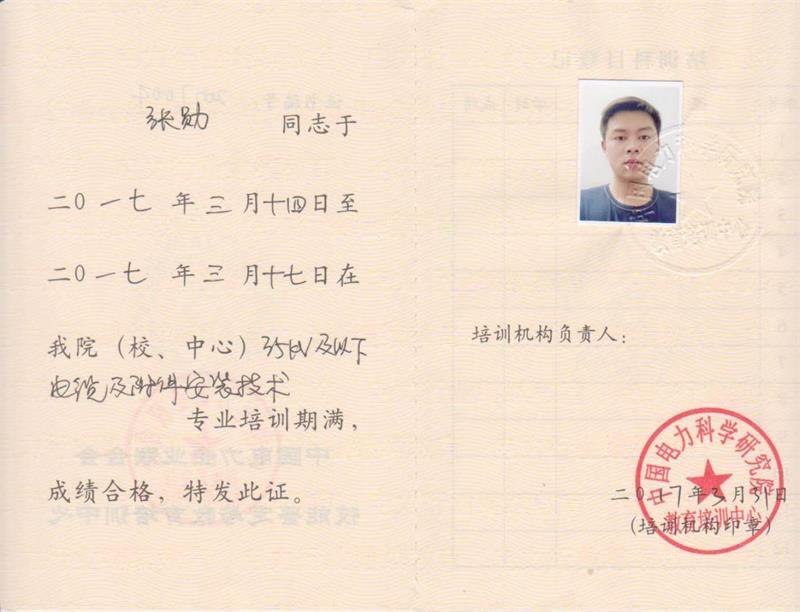 张勋 同志于
二〇一七 年 三 月 十四 日至
二〇一七 年 三 月 十七 日在
我院（校、中心）35kV及以下
电缆及附件安装技术
专业培训期满，
成绩合格，特发此证。
中国电力科学研究院
教育培训中心
培训机构负责人：
中国电力科学研究院
二〇17年3月31日
教育培训中心
（培训机构印章）